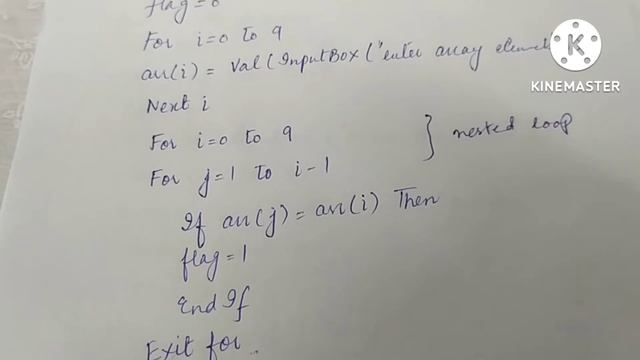 flag = 0
For i=0 to 9
arr(i) = Val(InputBox("enter array elem
Next i
For i=0 to 9
For j=1 to i-1
} nested loop
If arr(j) = arr(i) Then
flag = 1
End If
Exit for
KINEMASTER